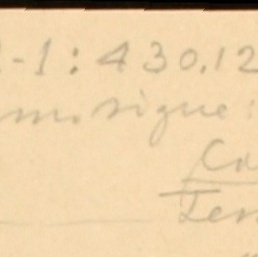 -1:430.12
signe:
Ca
Ten